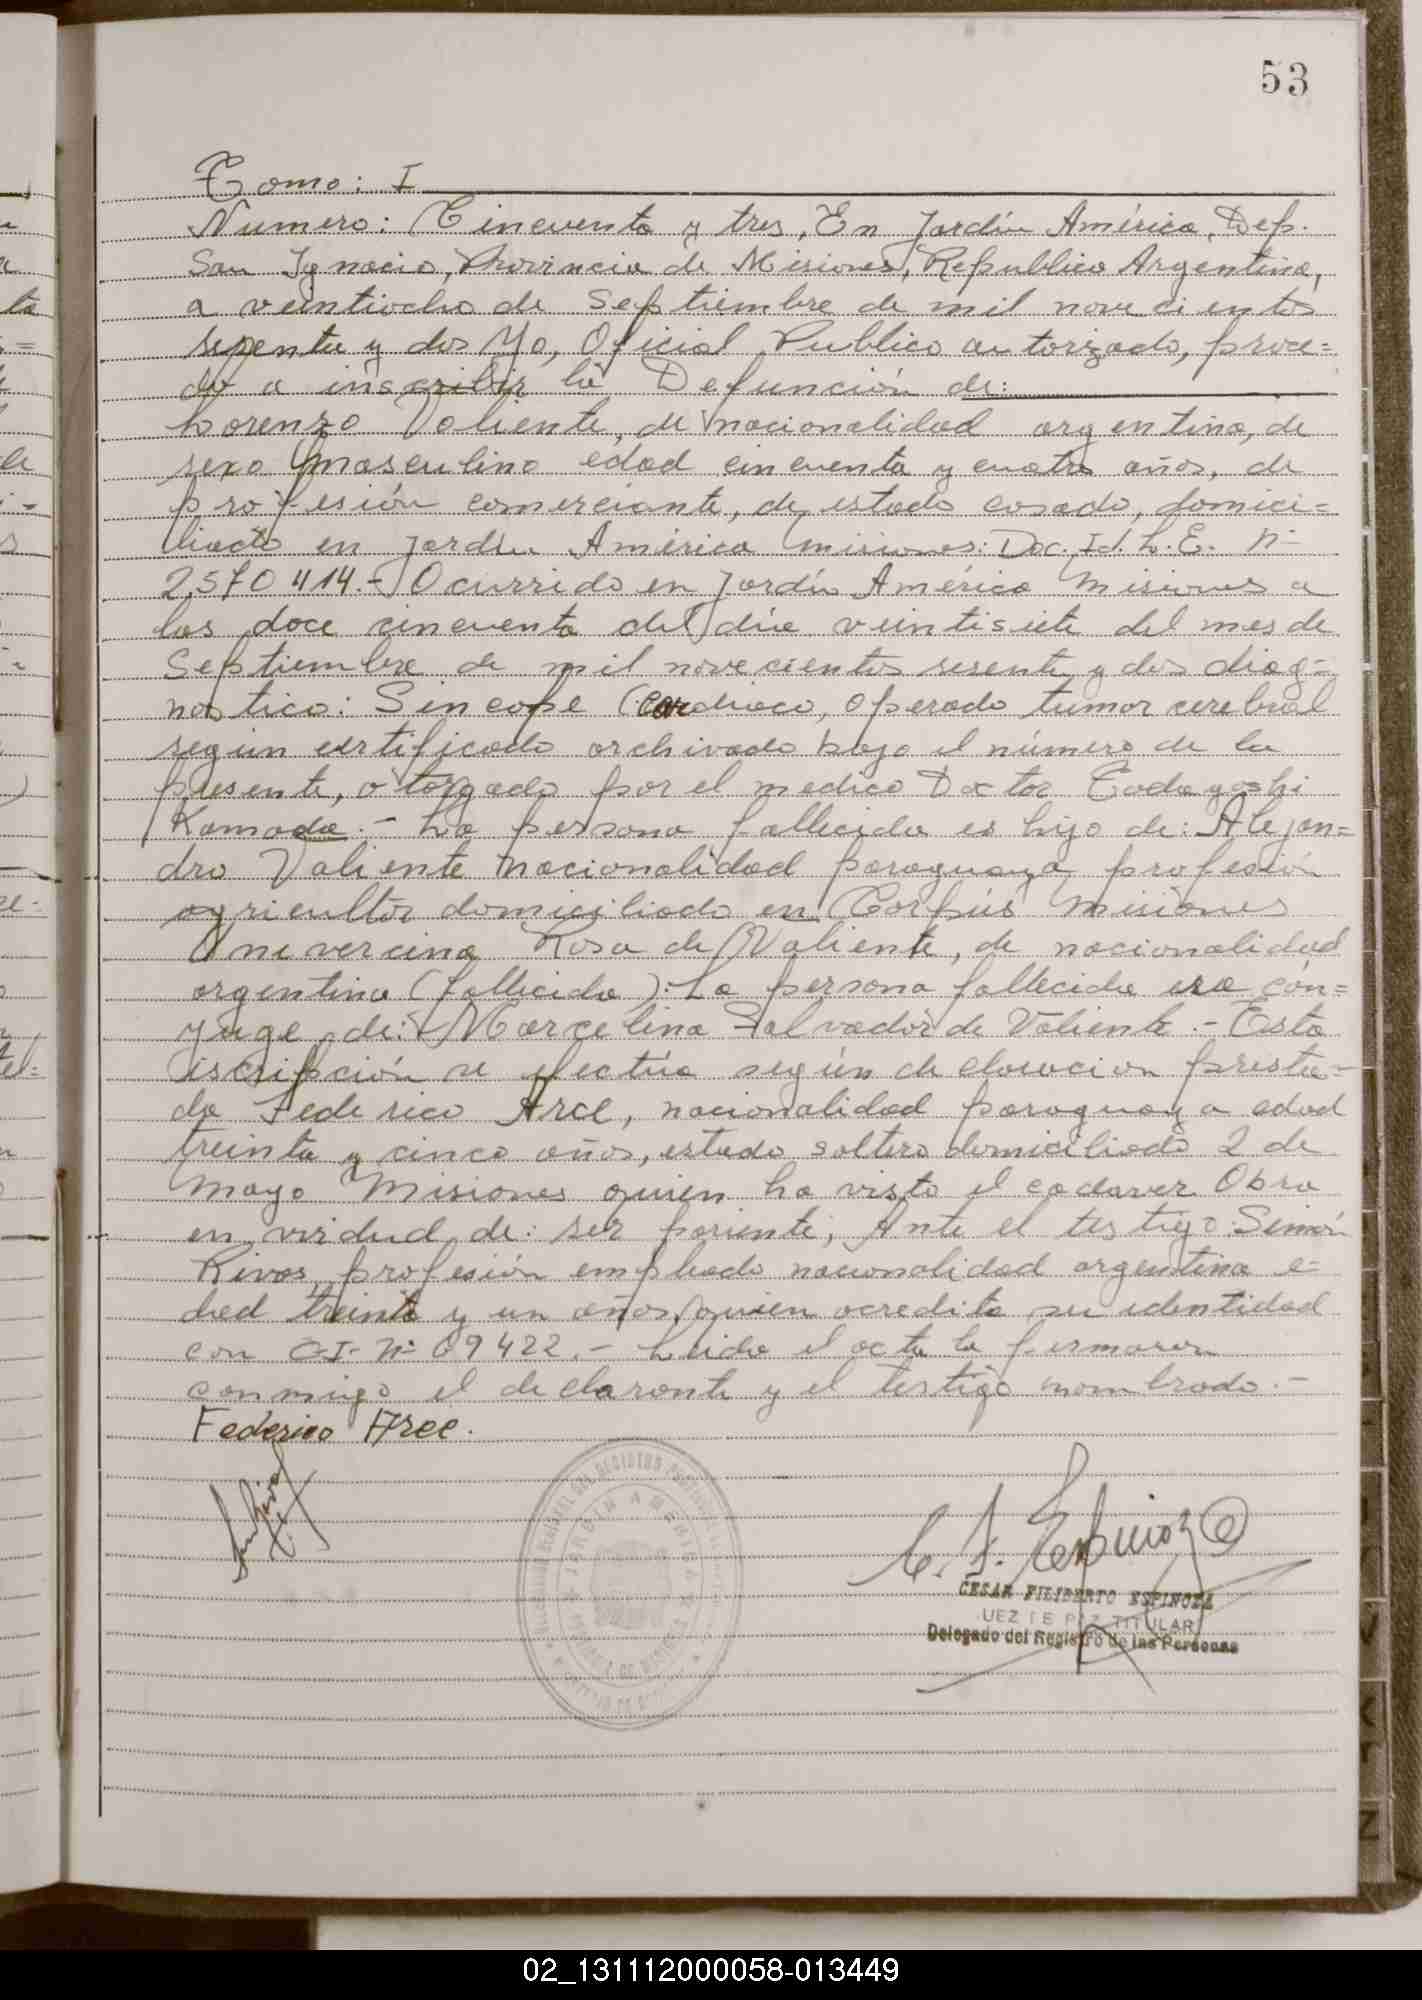 53
Tomo: I
Numero: Cincuenta y tres, En Jardín América, Dep.
San Ignacio, Provincia de Misiones, Republica Argentina,
a veintiocho de Septiembre de mil novecientos
sesenta y dos Yo, Oficial Publico autorizado, proce=
do a inscribir la Defunción de:
Lorenzo Valiente, de nacionalidad argentina, de
sexo masculino edad cincuenta y cuatro años, de
profesión comerciante, de estado casado, domici=
liado en Jardín América Misiones: Doc. Id. L. E. Nº
2.570414.- Ocurrido en Jardín América Misiones a
las doce cincuenta del día veintisiete del mes de
Septiembre de mil novecientos sesenta y dos diag=
nostico: Sincope Cardiaco, Operado tumor cerebral
según certificado archivado bajo el número de la
presente, otorgado por el medico Doctor Tadayoshi
Kamada.- La persona fallecida es hijo de: Alejan=
dro Valiente nacionalidad paraguaya profesión
agricultor domiciliado en Corpus Misiones
Rosa de Valiente, de nacionalidad
argentina (fallecida). La persona fallecida era cón=
yuge de: Marcelina Salvador de Valiente.- Esta
iscripción se efectúa según declaracion presta=
da Federico Arce, nacionalidad paraguaya edad
treinta y cinco años, estado soltero domiciliado 2 de
Mayo Misiones quien ha visto el cadaver Obra
en virdud de: ser pariente; Ante el testigo: Simón
Rivas, profesión empleado nacionalidad argentina e=
dad treinta y un años, quien acredita su identidad
con C-I- Nº 09422.- Leida el acta la firmaron
conmigo el declarante y el testigo nombrado.-
Federico Arce.
C. F. Espinoza
CESAR FILIBERTO ESPINOZA
UEZ DE PAZ TITULAR
Delegado del Registro de las Personas
02_131112000058-013449